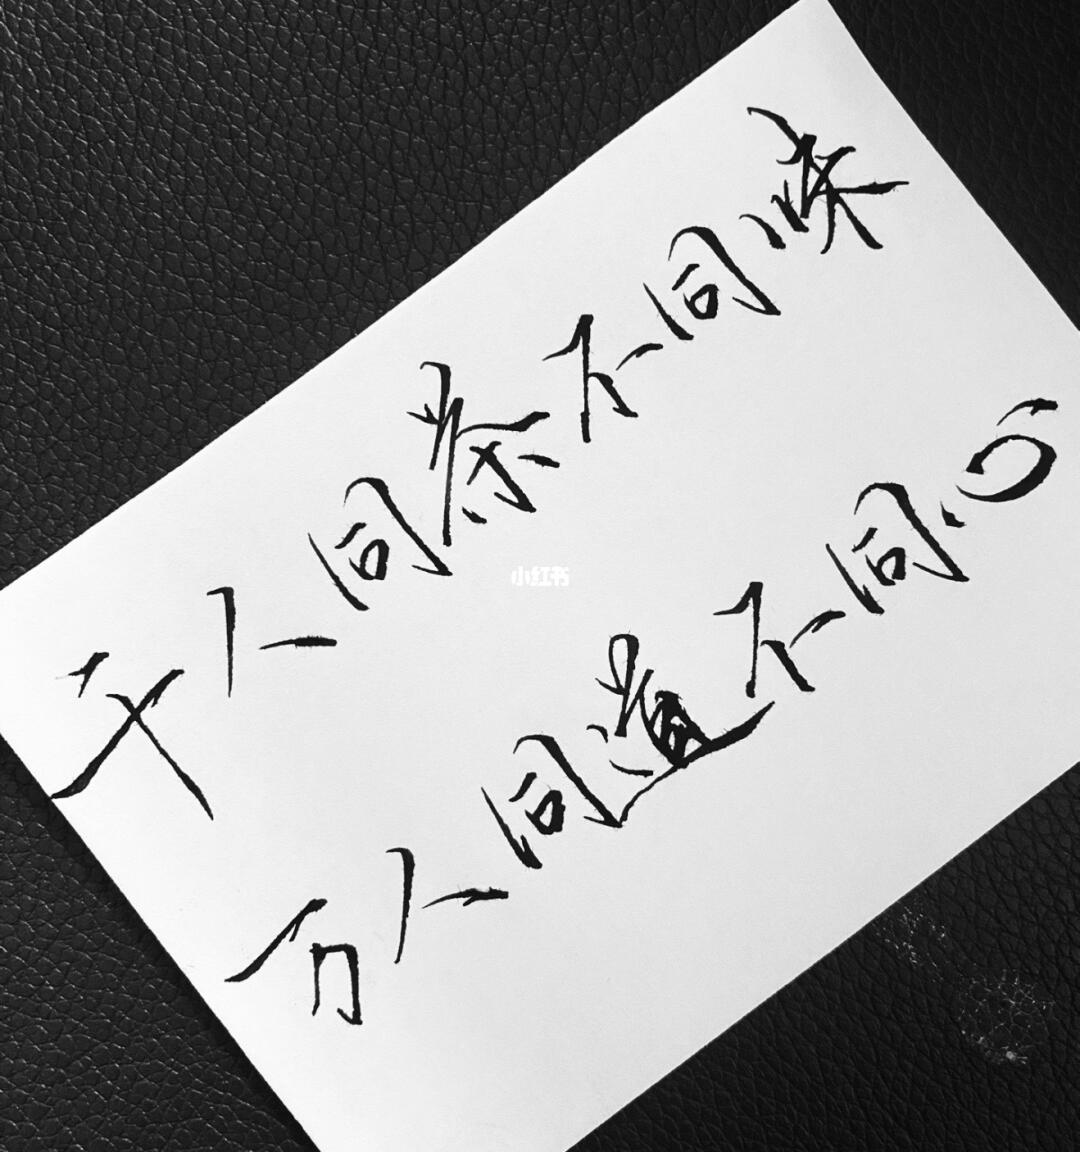 千人同茶不同味
万人同道不同心
小红书